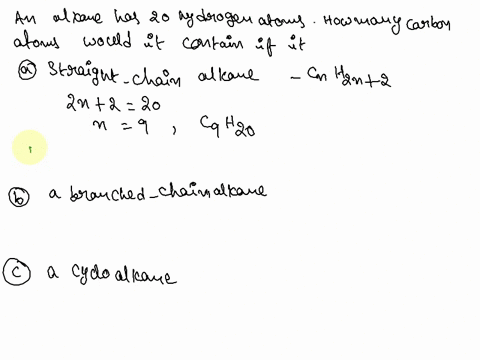 An alkane has 20 hydrogen atoms. How many carbon
atoms would it contain if it
(a) Straight-chain alkane - CnH2n+2
2n+2 = 20
n = 9 , C9H20
(b) a branched-chain alkane
(c) a cyclo alkane